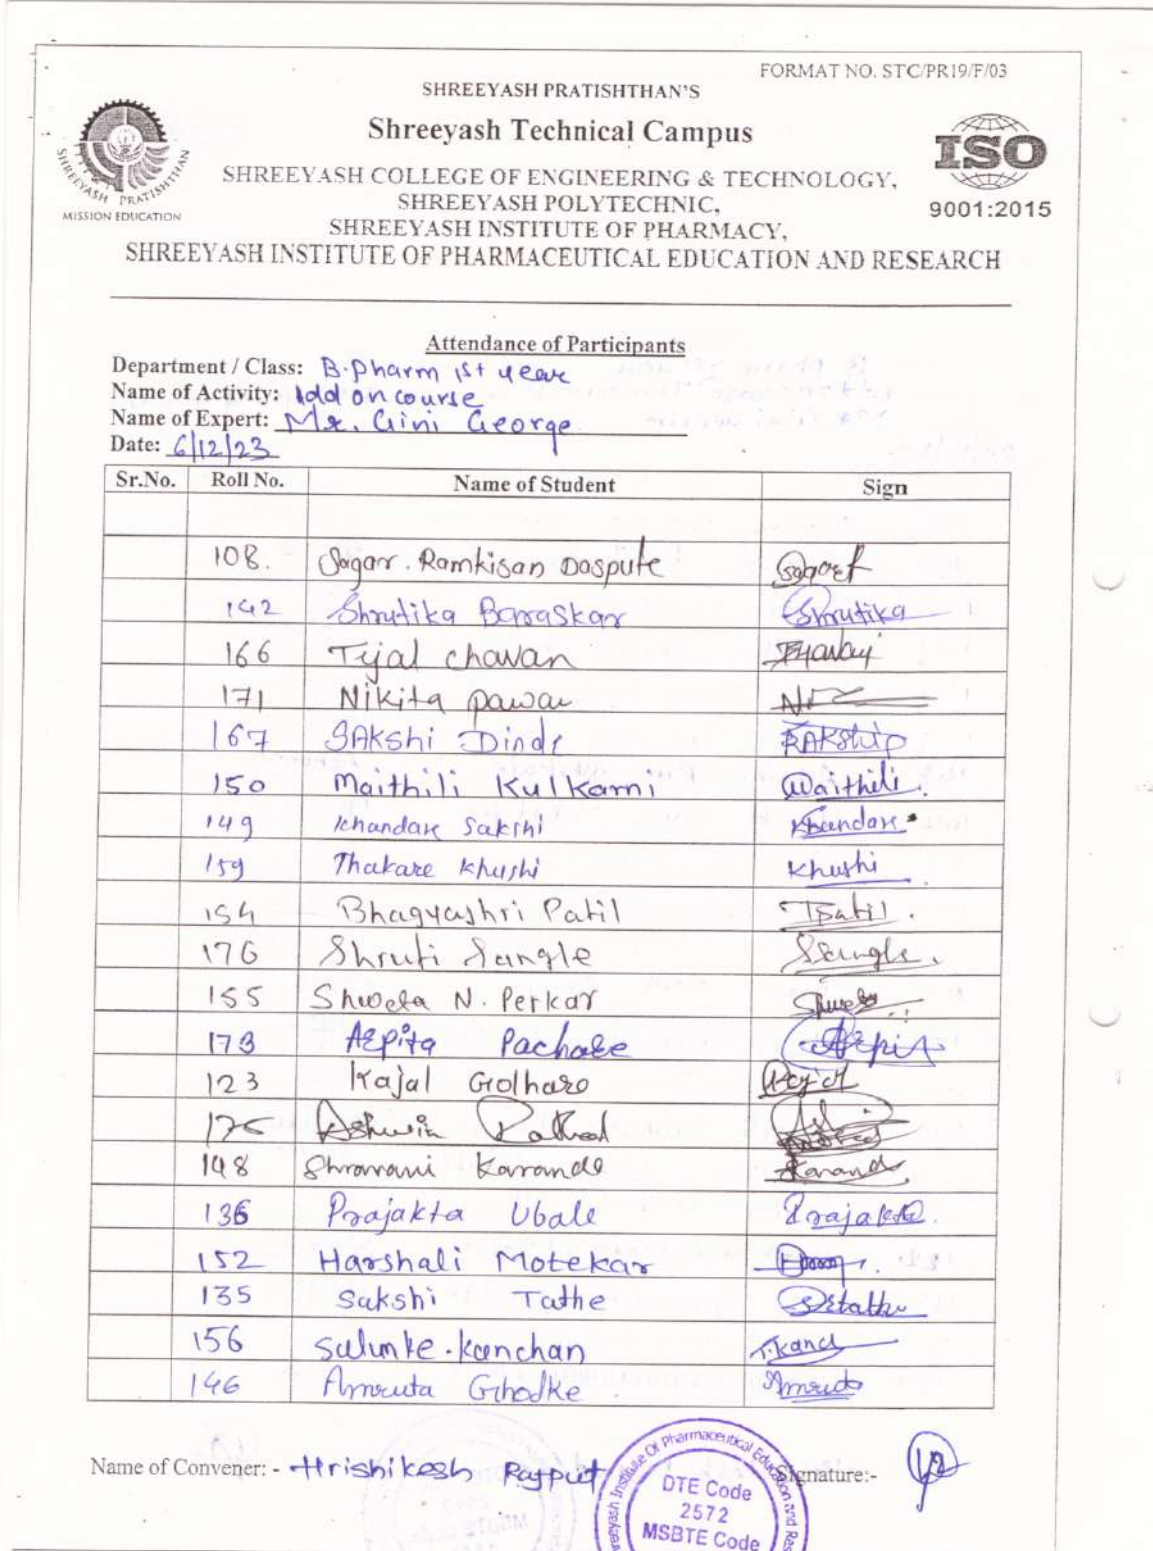 FORMAT NO. STC/PR19/F/03
SHREEYASH PRATISHTHAN'S
Shreeyash Technical Campus
SHREEYASH COLLEGE OF ENGINEERING & TECHNOLOGY,
SHREEYASH POLYTECHNIC,
SHREEYASH INSTITUTE OF PHARMACY,
SHREEYASH INSTITUTE OF PHARMACEUTICAL EDUCATION AND RESEARCH
SHREEYASH PRATISHTHAN
MISSION EDUCATION
ISO
9001:2015
Attendance of Participants
Department / Class: B.Pharm 1st year
Name of Activity: Add on course
Name of Expert: Mr. Gini George
Date: 6/12/23
Sr.No. Roll No. Name of Student Sign
108. Sagar. Ramkisan Daspute
142 Shrutika Baraskar Shrutika
166 Tijal chavan
171 Nikita pawar
167 SAkshi Dinde
150 Maithili Kulkarni Maithili.
149 Khandare Sakshi Khandare
159 Thakare Khushi Khushi
154 Bhagyashri Patil
176 Shruti Sangle Sangle.
155 Shweta N. Perkar
173 Arpita Pachare
123 Kajal Golhare Kajal
Ashwin Rathod
148 Shravani Karande Karande
136 Prajakta Ubale Prajakta.
152 Harshali Motekar
135 Sakshi Tathe
156 Salunke.kanchan
146 Amruta Ghodke Amruta
Name of Convener: - Hrishikesh Rajput Signature:-
Shreeyash Institute Of Pharmaceutical Education and Res
DTE Code
2572
MSBTE Code